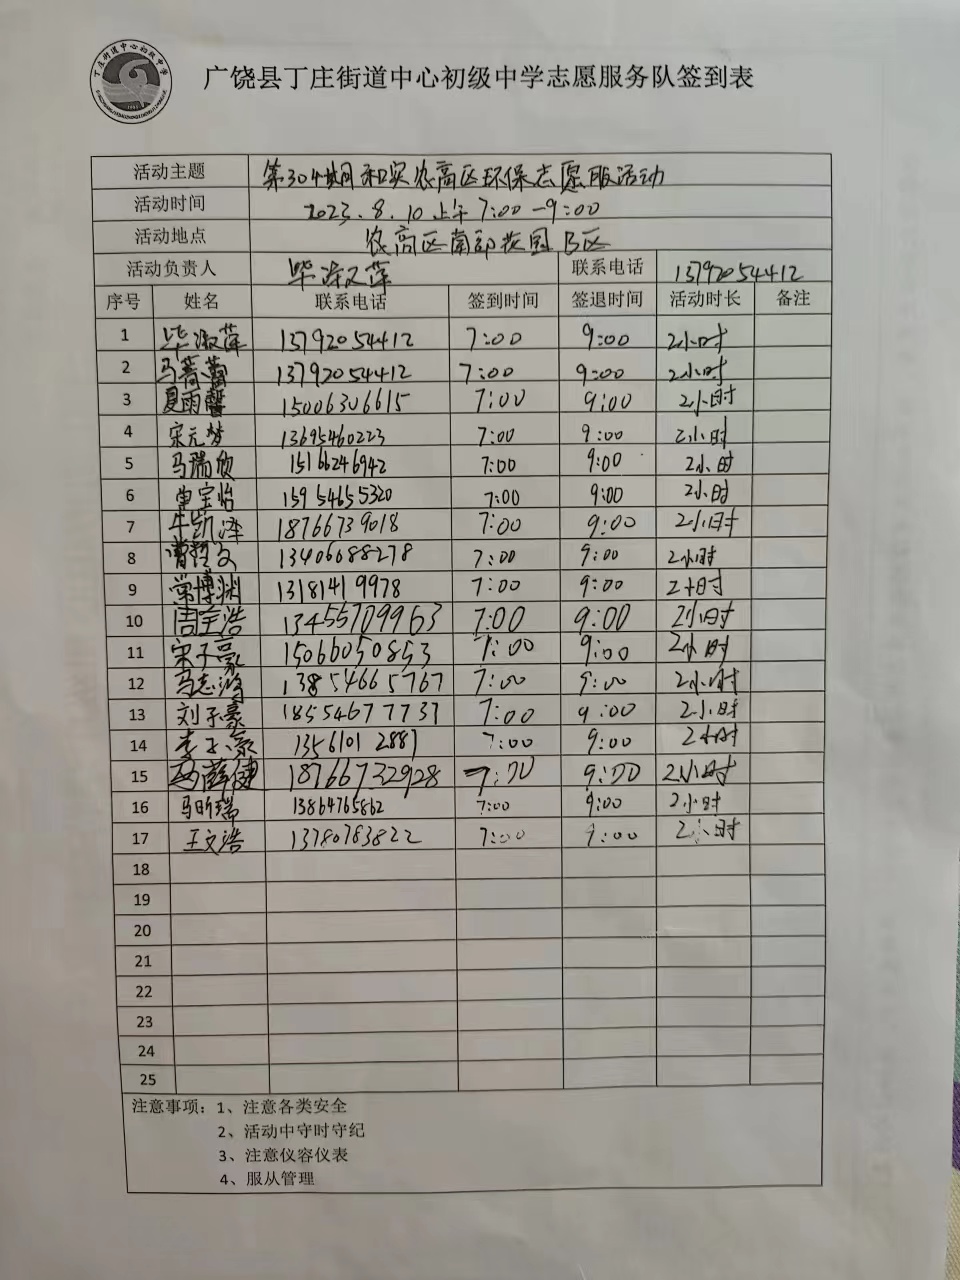 丁庄街道中心初级中学
广饶县丁庄街道中心初级中学志愿服务队签到表
活动主题 第304期和实农高区环保志愿服活动
活动时间 2023.8.10上午7:00-9:00
活动地点 农高区南部花园B区
活动负责人 毕淑萍 联系电话 13792054412
序号 姓名 联系电话 签到时间 签退时间 活动时长 备注
1 毕淑萍 13792054412 7:00 9:00 2小时
2 马蕾蕾 13792054412 7:00 9:00 2小时
3 夏雨馨 15006306615 7:00 9:00 2小时
4 宋元梦 13695460223 7:00 9:00 2小时
5 马瑞欣 15166246942 7:00 9:00 2小时
6 宝怡 15954655320 7:00 9:00 2小时
7 牛凯泽 18766739018 7:00 9:00 2小时
8 13406088278 7:00 9:00 2小时
9 常博渊 13181419978 7:00 9:00 2小时
10 周宝浩 13455709963 7:00 9:00 2小时
11 宋子豪 15066050853 7:00 9:00 2小时
12 马志鸿 13854665767 7:00 9:00 2小时
13 刘子豪 18554677737 7:00 9:00 2小时
14 李子豪 13561012881 7:00 9:00 2小时
15 赵薛健 18766732928 7:00 9:00 2小时
16 马昕瑞 13864765862 7:00 9:00 2小时
17 王文浩 13780783822 7:00 9:00 2小时
18
19
20
21
22
23
24
25
注意事项：1、注意各类安全
2、活动中守时守纪
3、注意仪容仪表
4、服从管理